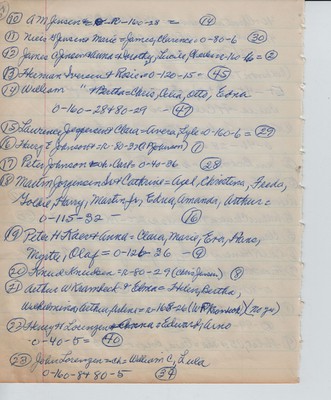 (10) A M Jensen = R-160-28 = (19)
(11) Niels Jensen + Marie = James, Clarence 0-80-6 (30)
(12) James Jensen + Anna = Dorothy, Lucile, R-160-6 = (2)
(13) Herman Iversen + Rosie = 0-120-15 = (45)
(14) William " + Bertha = Chris, Celia, Otto, Edna
0-160-28 + 80-29 - (47)
(15) Laurence Jorgensen + Clara = Avera, Lyle 0-160-6 = (29)
(16) Harry E Johnson = R-80-32 (P Johnson) (1)
(17) Peter Johnson = ch. Carl = 0-40-36 (28)
(18) Martin Jorgensen Sr + Cathrine = Axel, Christena, Freda,
Goldie, Harry, Martin Jr, Edna, Amanda, Arthur =
0-115-32 - (16)
(19) Peter H Kaer + Anna = Clara, Marie, Eva, Arno,
Myrtle, Olaf = 0-126-36 - (9)
(20) Knud Knudsen = R-80-29 (Chris Jensen) (8)
(21) Arthur W Karnbeck + Edna = Helen, Bertha,
Wilhelmina, Arthur, = R-168-26 (W F ) (no 34)
(22) Henry H Lorenzen + Anna = Edward, Arno
0-40-5 = (40)
(23) John Lorenzen = ch = William C, Lula
0-160-8 + 80-5 (24)